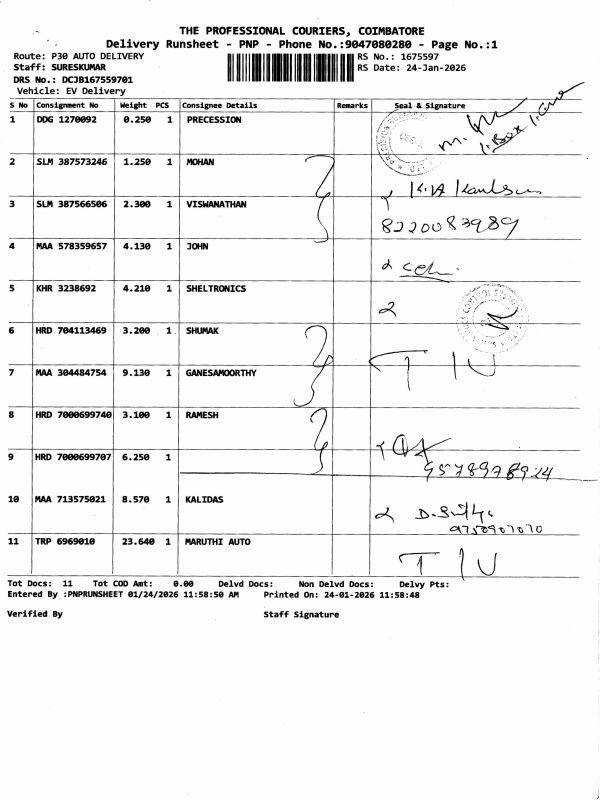 THE PROFESSIONAL COURIERS, COIMBATORE
Delivery Runsheet - PNP - Phone No.:9047080280 - Page No.:1
Route: P30 AUTO DELIVERY RS No.: 1675597
Staff: SURESKUMAR RS Date: 24-Jan-2026
DRS No.: DCJB167559701
Vehicle: EV Delivery
S No Consignment No Weight PCS Consignee Details Remarks Seal & Signature
1 DDG 1270092 0.250 1 PRECESSION
1.Box
2 SLM 387573246 1.250 1 MOHAN
3 SLM 387566506 2.300 1 VISWANATHAN
8220083989
4 MAA 578359657 4.130 1 JOHN
5 KHR 3238692 4.210 1 SHELTRONICS
6 HRD 704113469 3.200 1 SHUMAK
7 MAA 304484754 9.130 1 GANESAMOORTHY
8 HRD 7000699740 3.100 1 RAMESH
9 HRD 7000699707 6.250 1
10 MAA 713575021 8.570 1 KALIDAS
11 TRP 6969010 23.640 1 MARUTHI AUTO
Tot Docs: 11 Tot COD Amt: 0.00 Delvd Docs: Non Delvd Docs: Delvy Pts:
Entered By :PNPRUNSHEET 01/24/2026 11:58:50 AM Printed On: 24-01-2026 11:58:48
Verified By Staff Signature